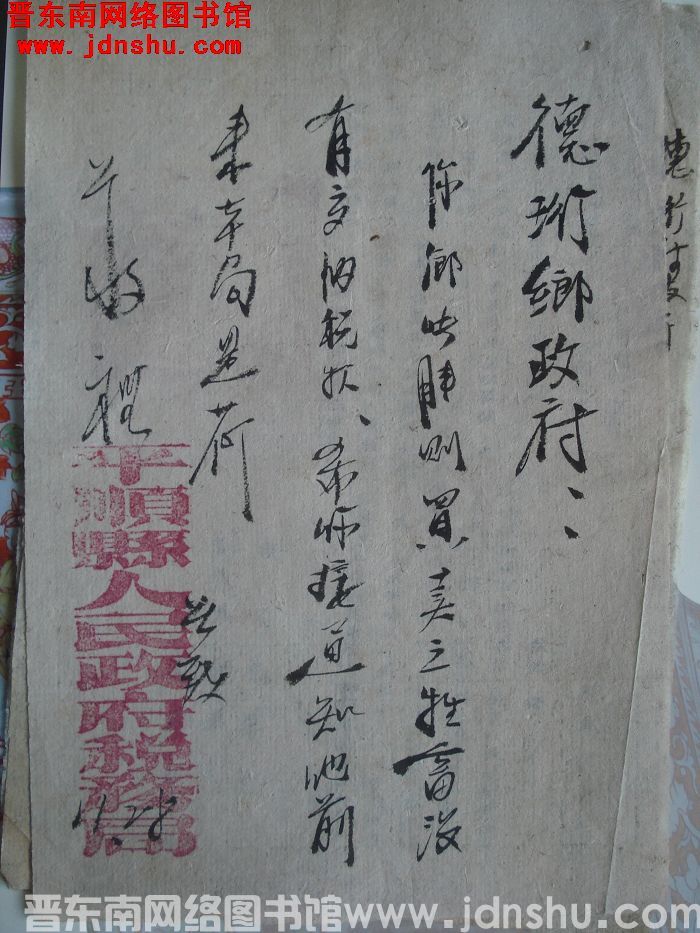 晋东南网络图书馆
www.jdnshu.com
德珩鄉政府：
你鄉 買卖之牲畜没
有交纳税款、希你接通知他前
来本局是荷
此致
敬礼
平順縣人民政府税務局
11.28
晋东南网络图书馆www.jdnshu.com